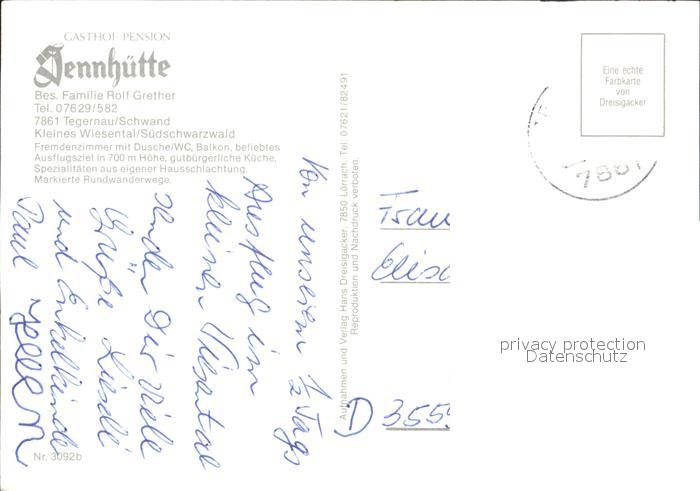 GASTHOF PENSION
Sennhütte
Bes. Familie Rolf Grether
Tel. 07629/582
7861 Tegernau/Schwand
Kleines Wiesental/Südschwarzwald
Fremdenzimmer mit Dusche/WC, Balkon, beliebtes
Ausflugsziel in 700 m Höhe, gutbürgerliche Küche,
Spezialitäten aus eigener Hausschlachtung.
Markierte Rundwanderwege.
Von unserem 1/2 Tags
Ausflug im
kleinen Wiesental
senden Dir viele
Grüße Liesel
und Enkelkinder
Paul
Nr. 3092b
Aufnahmen und Verlag Hans Dreisigacker, 7850 Lörrach, Tel. 07621/82491
Reproduktion und Nachdruck verboten.
Eine echte
Farbkarte
von
Dreisigacker
Frau
Elis
D 355
privacy protection
Datenschutz